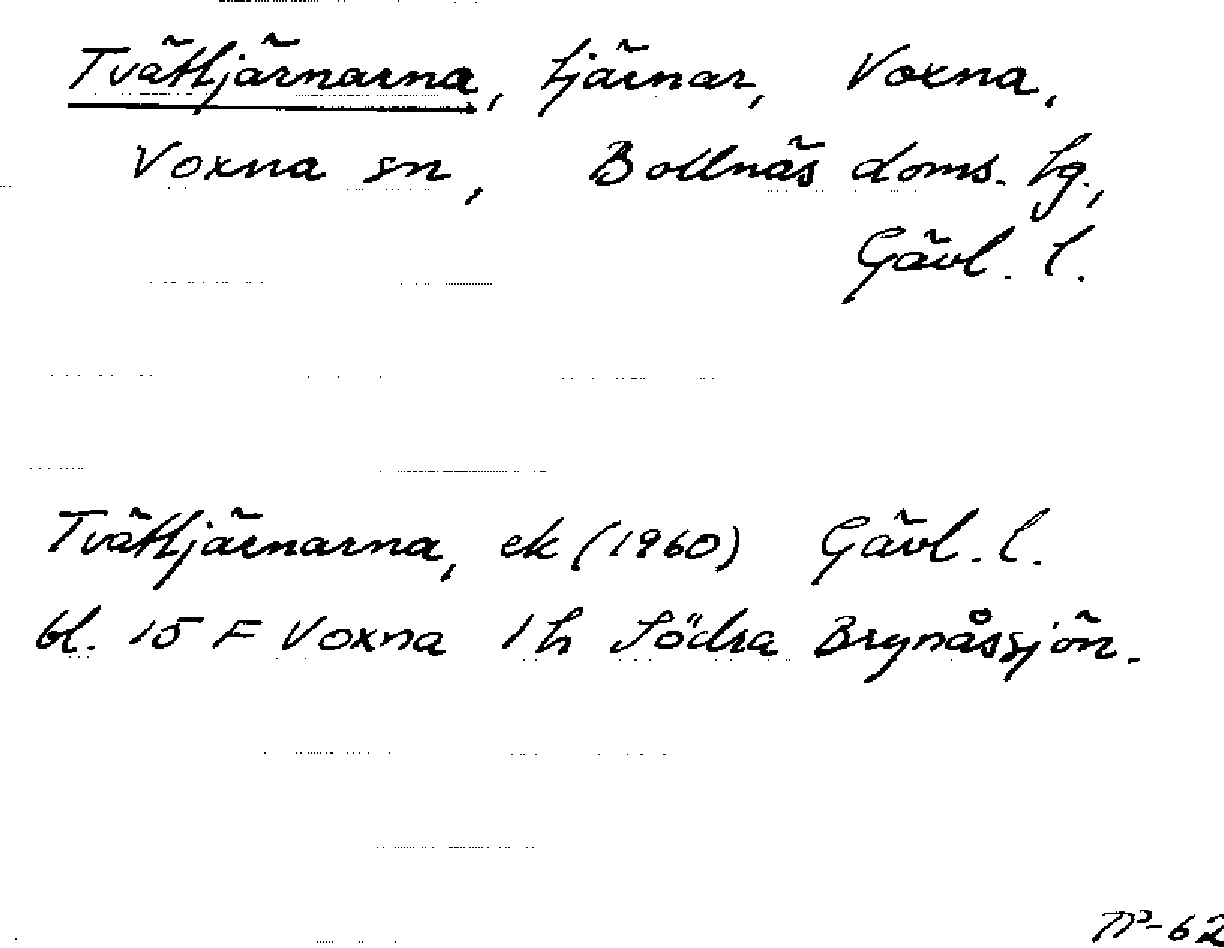 Tvättjärnarna, tjärnar, Voxna,
Voxna sn, Bollnäs doms. tg.,
Gävl. l.
Tvättjärnarna, ek (1960) Gävl. l.
bl. 15 F Voxna 1 h Södra Brynåssjön.